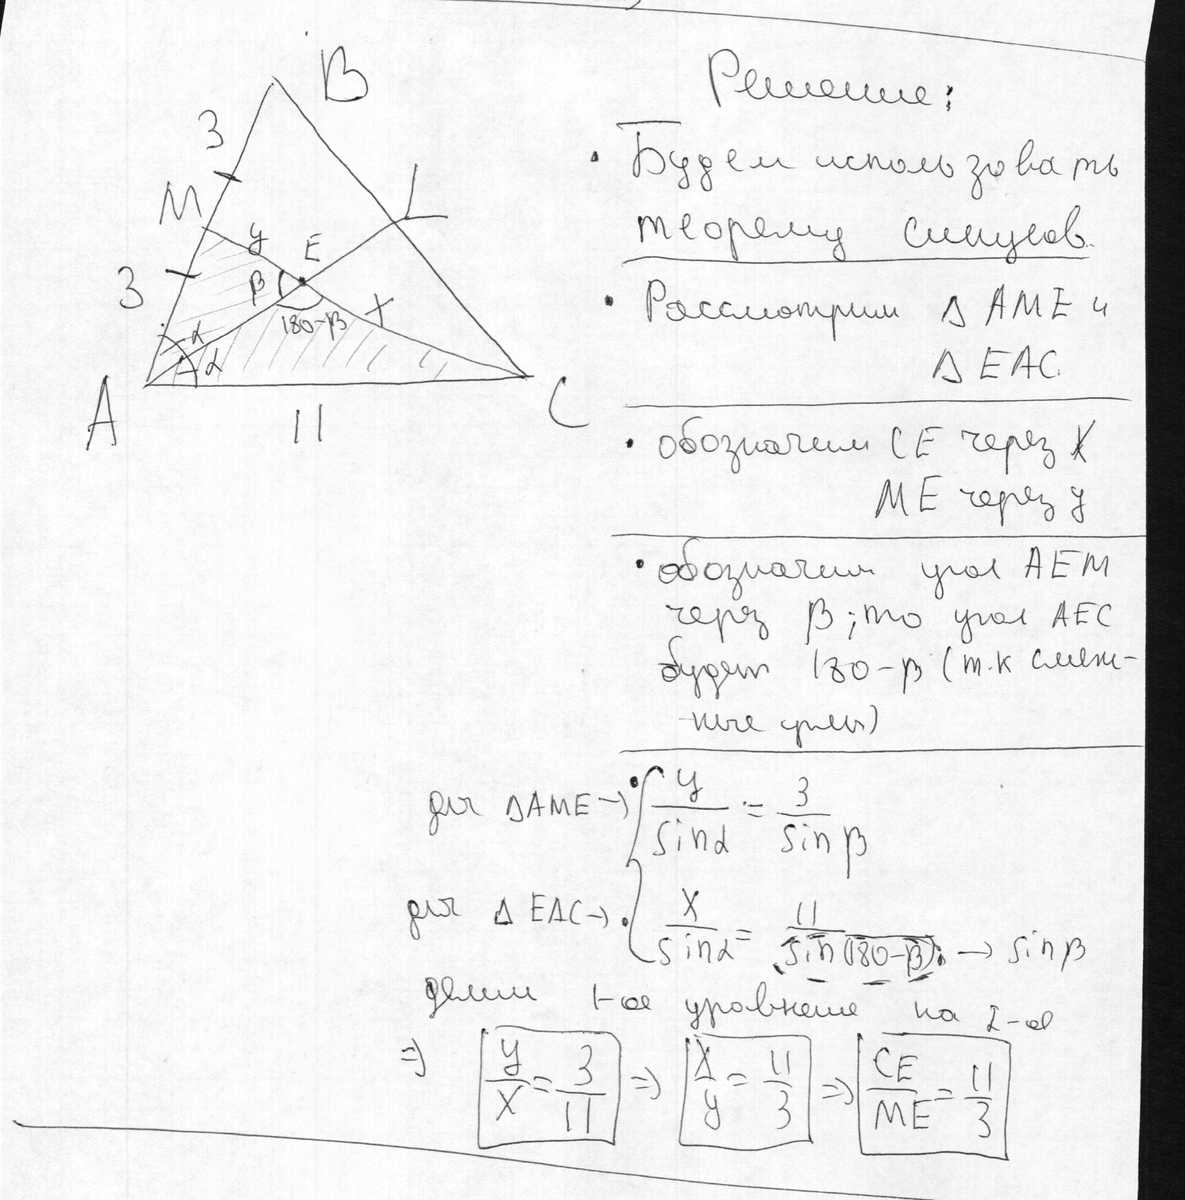 B
3
M
y
E
3
β
180-β
x
α
α
A
11
C
Решение:
Будем использовать
теорему синусов.
Рассмотрим Δ AME и
Δ EAC.
обозначим CE через X
ME через y
обозначим угол AEM
через β; то угол AEC
будет 180-β (т.к смеж-
-ные углы)
для ΔAME → y/sinα = 3/sinβ
для ΔEAC → x/sinα = 11/sin(180-β) → sinβ
делим 1-ое уравнение на 2-ое
⇒ y/x = 3/11 ⇒ x/y = 11/3 ⇒ CE/ME = 11/3